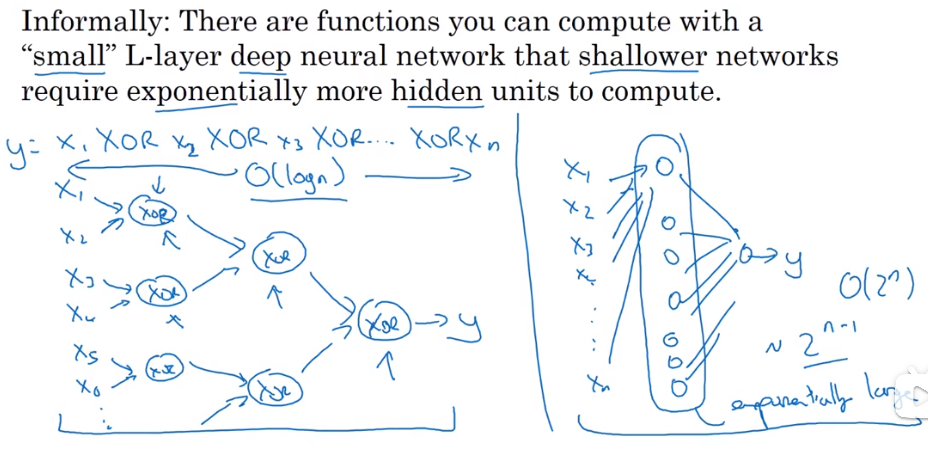 Informally: There are functions you can compute with a
“small” L-layer deep neural network that shallower networks
require exponentially more hidden units to compute.
y= x1 XOR x2 XOR x3 XOR... XOR xn
O(logn)
x1
XOR
x2
XOR
x3
XOR
x4
XOR → y
x5
XOR
x6
XOR
⋮
x1
x2
x3
x4
⋮
xn
y
O(2^n)
~ 2^n-1
exponentially large